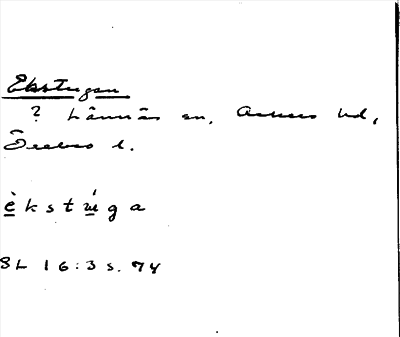 Ekstugan
? Lännäs sn, Askers hd,
Örebro l.
èkstuga
SL 16:3 s. 74